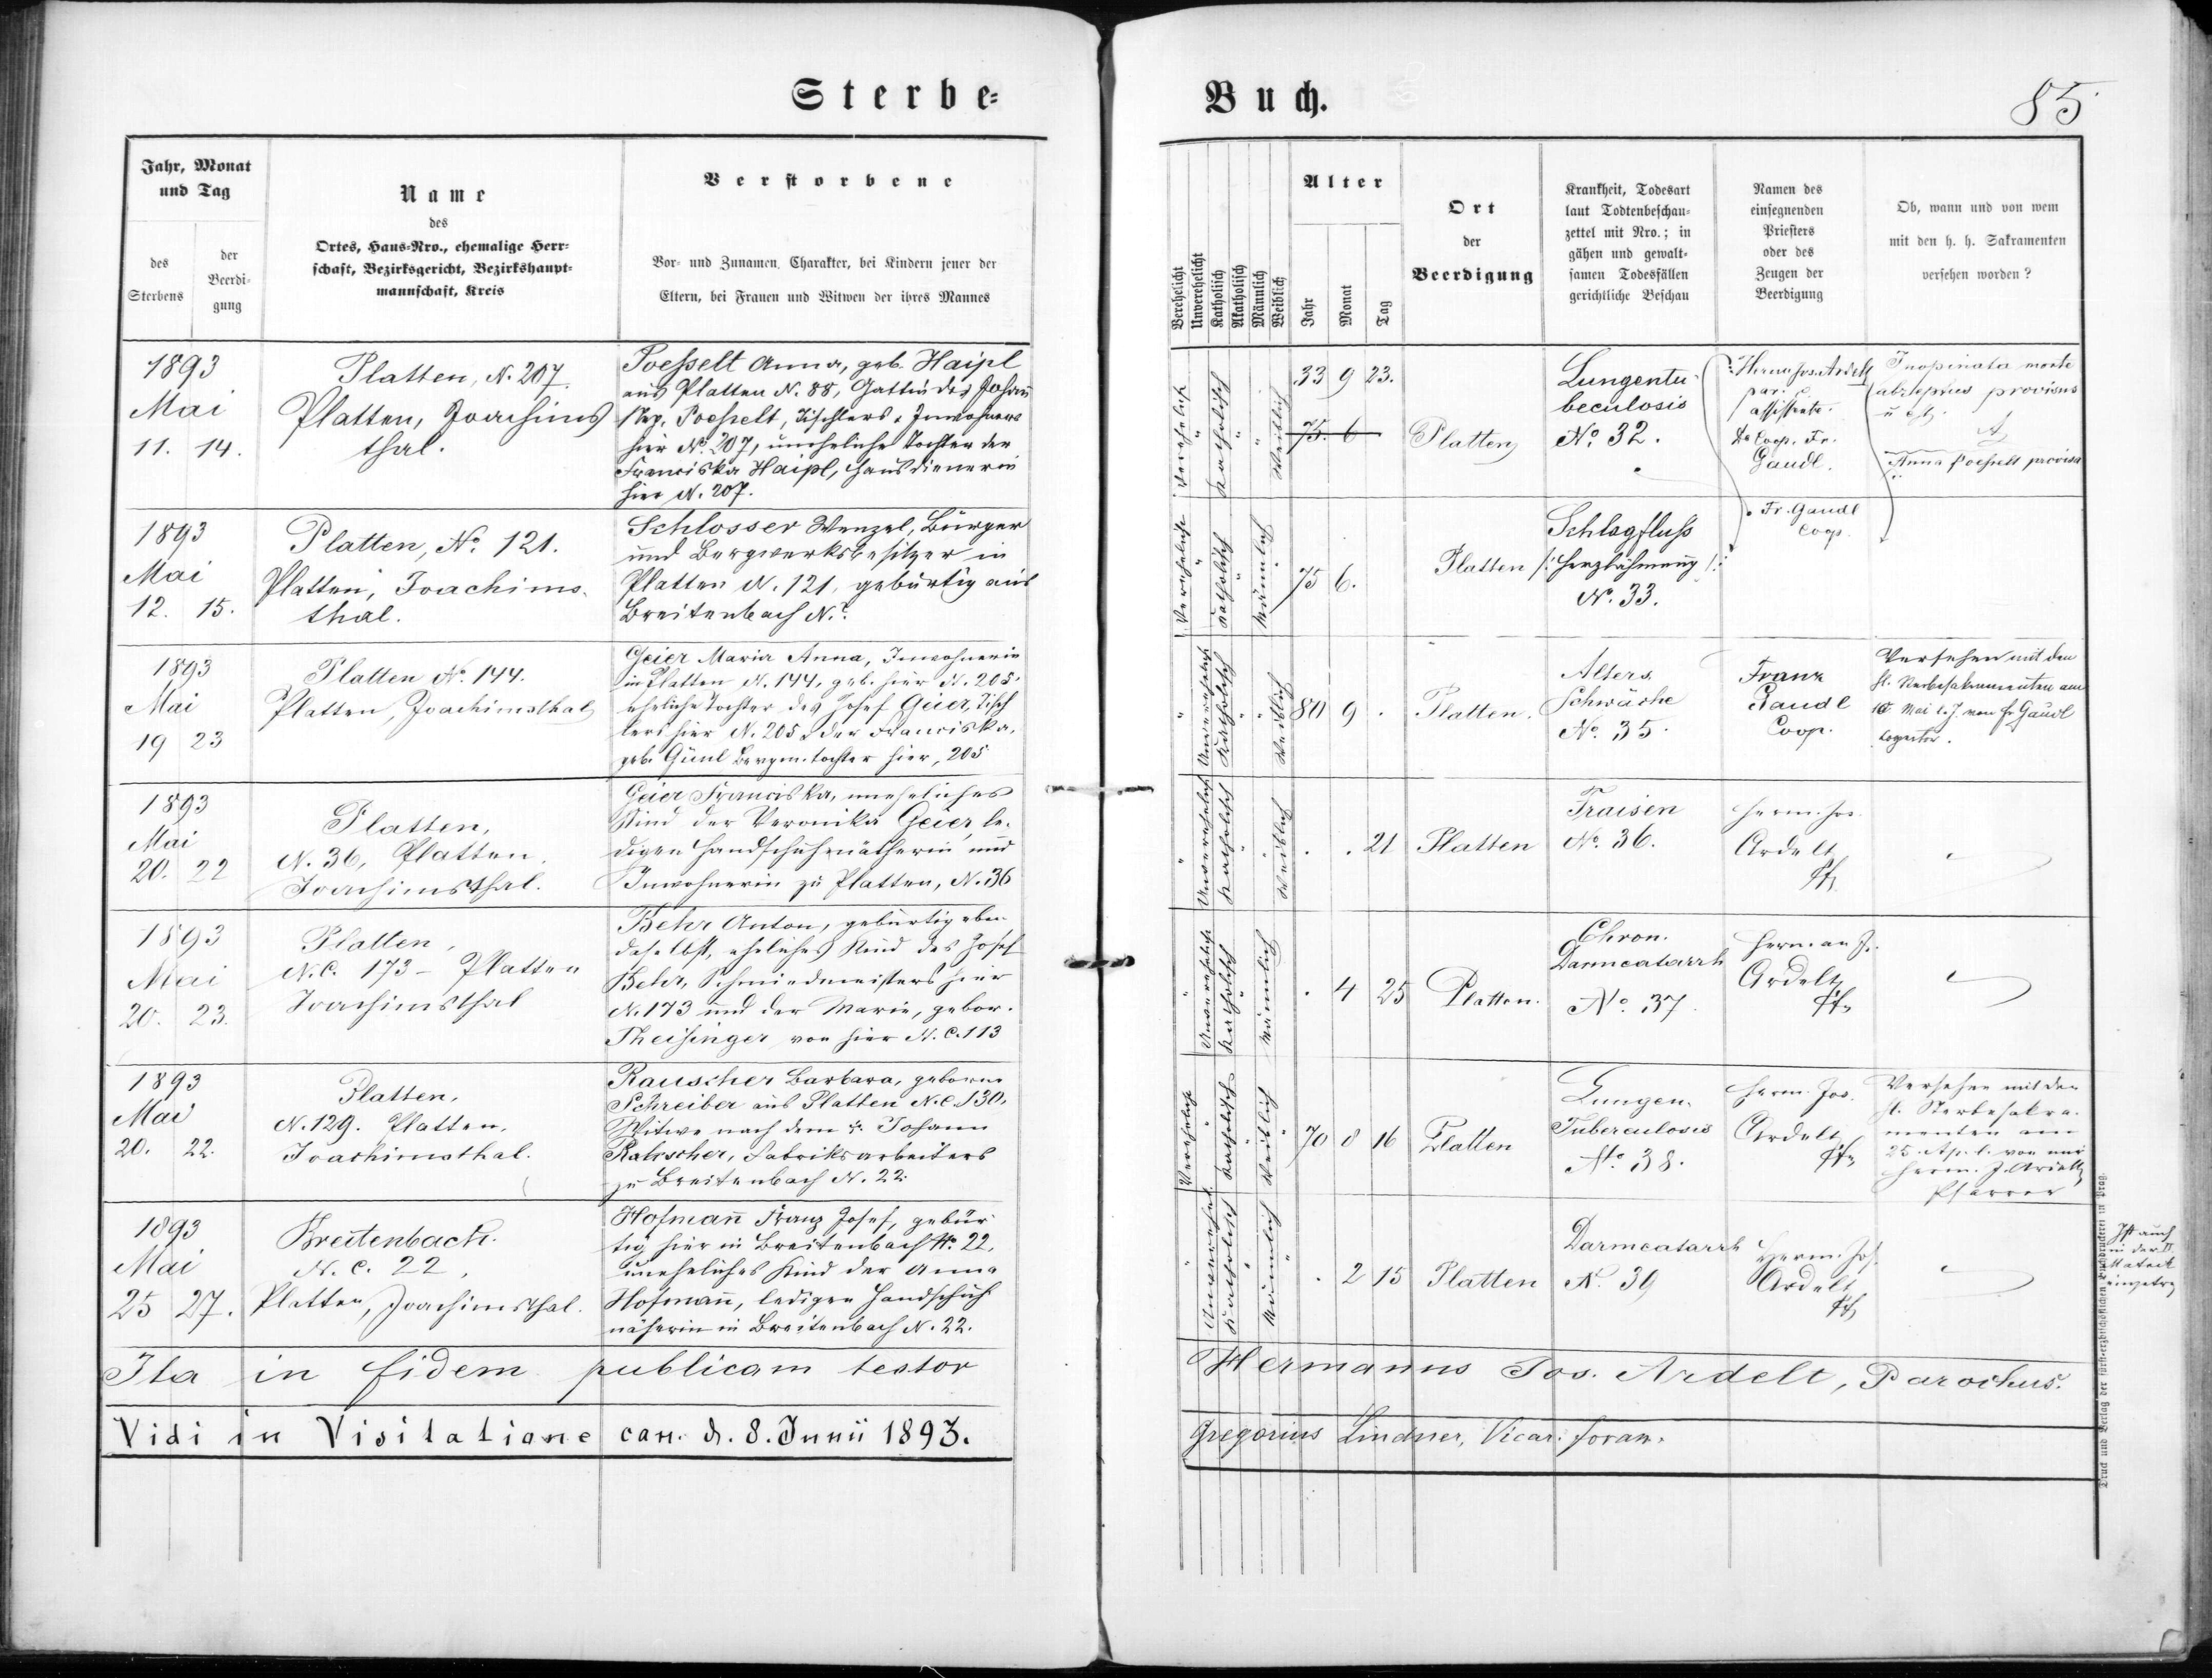 Sterbe-
Buch.
85
Jahr, Monat
und Tag
des
Sterbens
der
Beerdi-
gung
Name
des
Ortes, Haus-Nro., ehemalige Herr-
schaft, Bezirksgericht, Bezirkshaupt-
mannschaft, Kreis
Verstorbene
Vor- und Zunamen, Charakter, bei Kindern jener der
Eltern, bei Frauen und Witwen der ihres Mannes
Verehelicht
Unverehelicht
Katholisch
Akatholisch
Männlich
Weiblich
Alter
Jahr
Monat
Tag
Ort
der
Beerdigung
Krankheit, Todesart
laut Todtenbeschau-
zettel mit Nro.; in
gähen und gewalt-
samen Todesfällen
gerichtliche Beschau
Namen des
einsegnenden
Priesters
oder des
Zeugen der
Beerdigung
Ob, wann und von wem
mit den h. h. Sakramenten
versehen worden?
1893
Mai
11. 14.
Platten, N. 207.
Platten, Joachims
thal.
Poeßelt Anna, geb. Haipl
aus Platten N. 88, Gattin des Johañ
Nep. Poeßelt, Tischlers & Inwohners
hier No. 207, uneheliche Tochter der
Franciska Haipl, Hausdienerin
hier N. 207.
verehelicht
katholisch
Weiblich
33 9 23.
75. 6
Platten
Lungentu-
beculosis
No 32.
Herm. Jos. Ardelt
par.
assistente.
Coop. Fr.
Gaudl.
Inopinata morte
abreptus provisus
ñ est.
Anna Poeßelt provisa
1893
Mai
12. 15.
Platten, No. 121.
Platten, Joachims-
thal.
Schlosser Wenzel, Bürger
und Bergwerksbesitzer in
Platten N. 121, gebürtig aus
Breitenbach N.?
Verehelicht
Katholisch
Männlich
75 6.
Platten
Schlagfluß
/: Herzlähmung :/
No. 33.
Fr. Gaudl
Coop.
1893
Mai
19 23
Platten No. 144.
Platten, Joachimsthal
Geier Maria Anna, Inwohnerin
in Platten N. 144, geb. hier N. 205,
eheliche Tochter des Josef Geier, Tisch
lers hier N. 205 & der Franciska,
geb. Günl Bergm. tochter hier, 205
Unverehelicht
Katholisch
Weiblich
80 9 .
Platten.
Alters
Schwäche
No. 35.
Franz
Gaudl
Coop.
Versehen mit den
hl. Sterbesakramenten am
10 Mai l. J. von Fr. Gaudl
1893
Mai
20. 22
Platten,
N. 36, Platten
Joachimsthal.
Geier Franciska, uneheliches
Kind der Veronika Geier, le-
digen Handschuhnätherin und
Inwohnerin zu Platten, N. 36
Unverehelicht
Katholisch
Weiblich
. . 21
Platten
Fraisen
No. 36.
Herm. Jos.
Ardelt
Pf.
1893
Mai
20. 23.
Platten,
N.C. 173 - Platten
Joachimsthal
Behr Anton, gebürtig eben
daselbst, eheliches Kind des Josef
Behr, Schmiedmeisters hier
N. 173 und der Marie, gebor.
Theisinger von hier N.C. 113
Unverehelicht
Katholisch
Männlich
. 4 25
Platten.
Chron.
Darmcatarrh
No. 37.
Herman J.
Ardelt
Pf.
1893
Mai
20. 22.
Platten,
N. 129. Platten.
Joachimsthal.
Rauscher Barbara, geborne
Schreiber aus Platten N.C. 130,
Witwe nach dem Johann
Rauscher, Fabriksarbeiters
zu Breitenbach N. 22.
Verehelicht
Katholisch
Weiblich
70 8 16
Platten
Lungen-
Tuberculosis
No. 38.
Herm. Jos.
Ardelt
Pf.
Versehen mit den
hl. Sterbesakra-
menten am
25. Ap. l. von mir
Herm. J. Ardelt
Pfarrer
1893
Mai
25 27.
Breitenbach.
N.C. 22,
Platten, Joachimsthal.
Hofmañ Franz Josef, gebür
tig hier in Breitenbach N. 22,
uneheliches Kind der Anna
Hofmañ, ledigen Handschuh
näherin in Breitenbach N. 22.
Unverehel.
Katholisch
Männlich
. 2 15
Platten
Darmcatarrh
N. 39
Herm. Jos.
Ardelt
Pf.
Ist auch
in der II
Matrik
eingetrg
Ita in fidem publicam testor
Hermanns Jos. Ardelt, Parochus.
Vidi in Visitatione can. d. 8. Junii 1893.
Gregorius Lindner, Vicar. foran.
Druck und Verlag der fürst-erzbischöflichen Buchdruckerei in Prag.